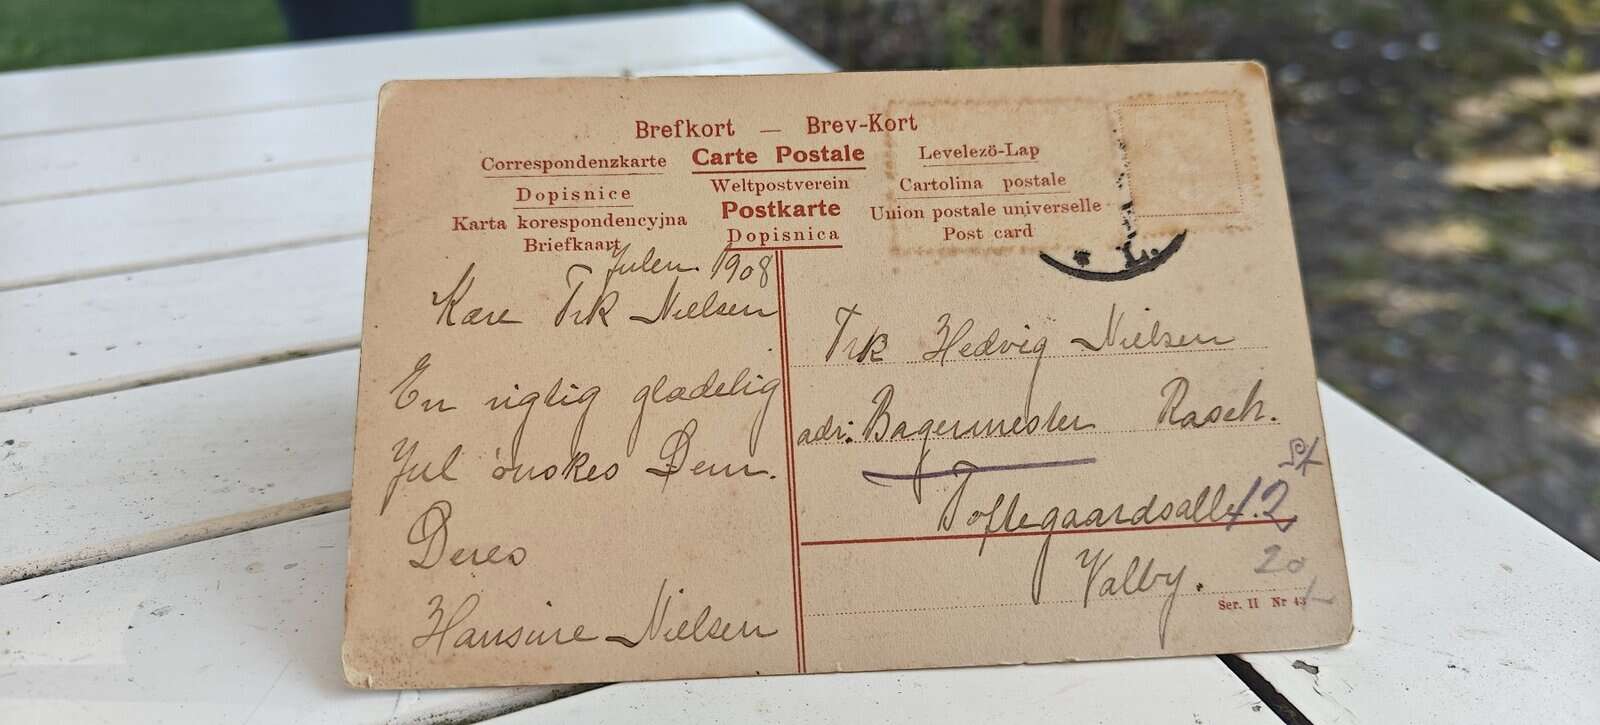 Brefkort — Brev-Kort
Correspondenzkarte Carte Postale Levelezö-Lap
Dopisnice Weltpostverein Cartolina postale
Karta korespondencyjna Postkarte Union postale universelle
Briefkaart Dopisnica Post card
Julen 1908
Kære Frk Nielsen
En rigtig glædelig
Jul ønskes Dem.
Deres
Hansine Nielsen
Frk Hedvig Nielsen
adr: Bagermester Rasch.
Toftegaardsalle 12
Valby.
20
Ser. II Nr 43